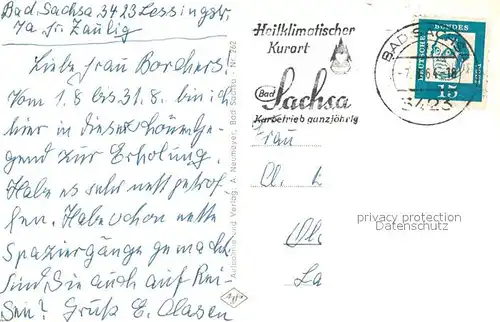 Bad Sachsa 3423 Lessingstr.
7a fr. Zaulig
Liebe Frau Borchers.
Vom 1.8 bis 31.8. bin ich
hier in dieser schönen Ge-
gend zur Erholung.
Habe es sehr nett getrof-
fen. Habe schon nette
Spaziergänge gemacht
Sind Sie auch auf Rei-
sen? Gruß E. Olasen
Aufnahme und Verlag A. Neumeyer, Bad Sachsa - Nr. 262
Agfa
Heilklimatischer
Kurort
Bad
Sachsa
Kurbetrieb ganzjährig
BAD SACHSA
3423
DEUTSCHE BUNDESPOST
15
Frau
privacy protection
Datenschutz